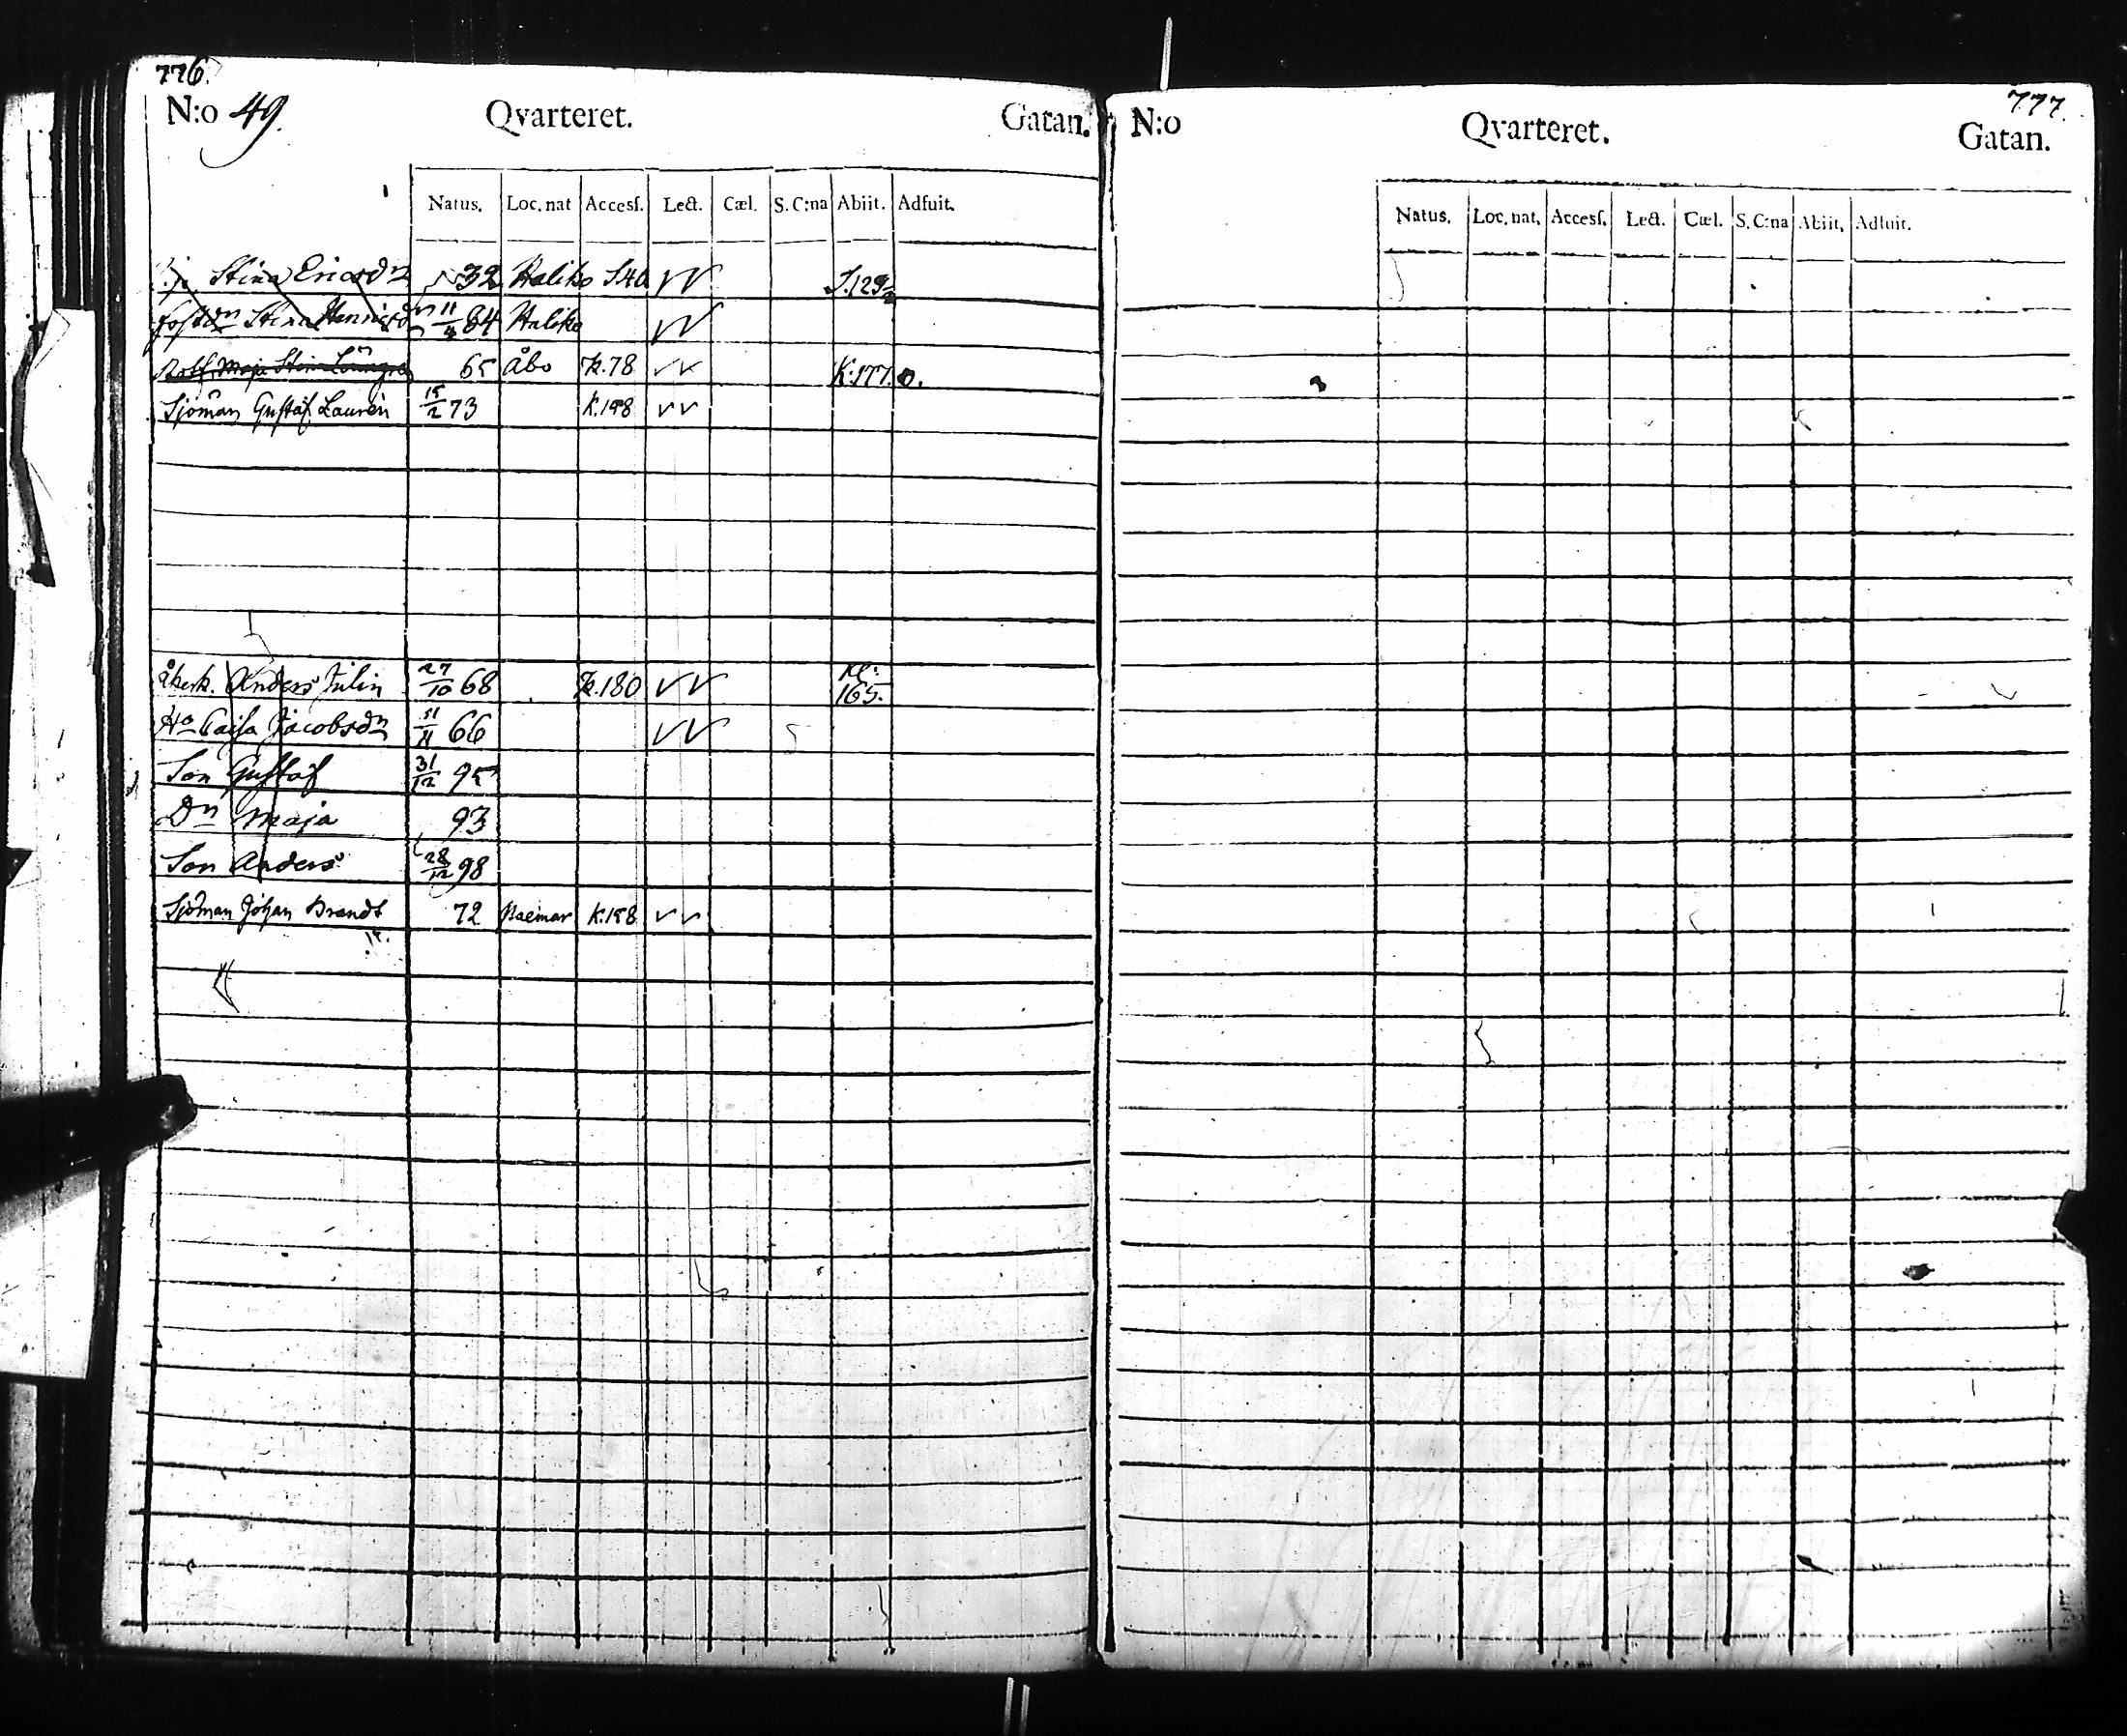 776.
N:o 49. Qvarteret. Gatan.
Natus. Loc. nat Accesſ. Lect. Cæl. S. C:na Abiit. Adfuit.
Stina Ericsdn 32 Haliko S40 S.129
Fostdn Stina Henricsd 11/4 84 Haliko
Maja Stina 65 Åbo K.78 K.177.
Sjöman Gustaf Lauren 15/2 73 K.158
Åkerk. Anders Julin 27/10 68 K.180 Kl: 165.
Hu Caisa Jacobsdn 11/11 66
Son Gustaf 31/12 95
Dn Maja 93
Son Anders 28/12 98
Sjöman Johan Brandt 72 K.158
777.
N:o Qvarteret. Gatan.
Natus. Loc. nat. Accesſ. Lect. Cæl. S. C:na Abiit. Adfuit.